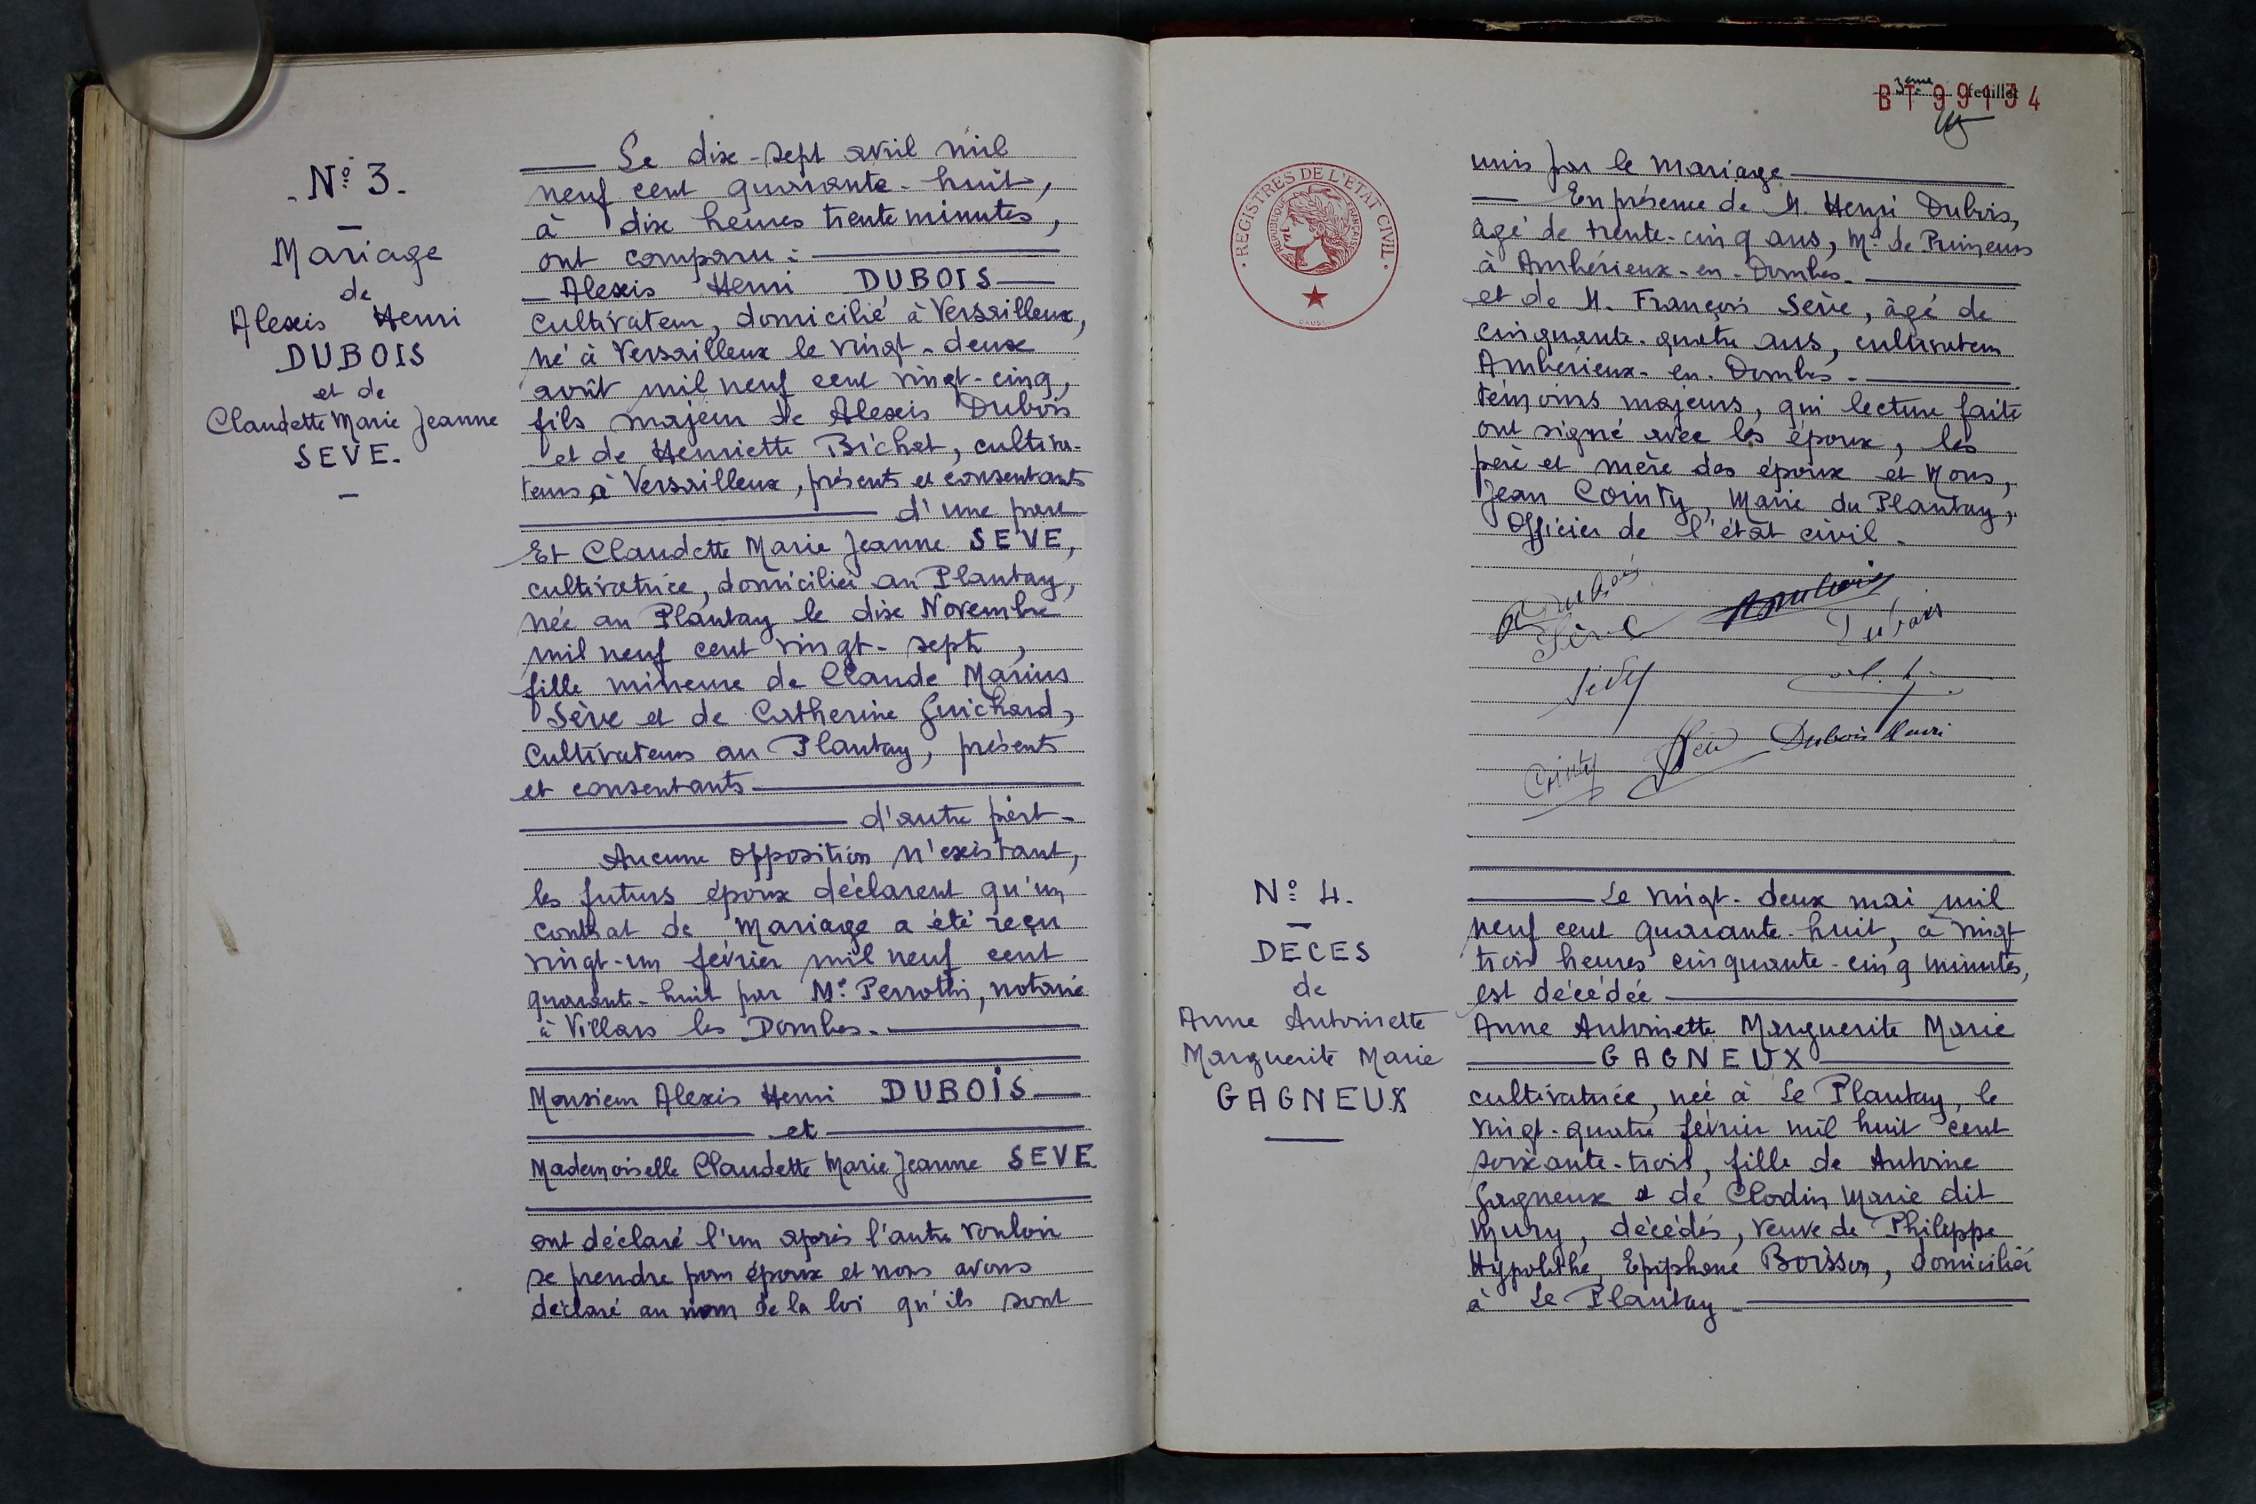 N° 3.
Mariage
de
Alexis Henri
DUBOIS
et de
Claudette Marie Jeanne
SEVE.
Le dix-sept avril mil
neuf cent quarante-huit,
à dix heures trente minutes,
ont comparu :
Alexis Henri DUBOIS
cultivateur, domicilié à Versailleux,
né à Versailleux le vingt-deux
août mil neuf cent vingt-cinq,
fils majeur de Alexis Dubois
et de Henriette Bichat, cultiva-
teurs à Versailleux, présents et consentants
d'une part
Et Claudette Marie Jeanne SEVE,
cultivatrice, domiciliée au Plantay,
née au Plantay le dix Novembre
mil neuf cent vingt-sept,
fille mineure de Claude Marius
Sève et de Catherine Guichard,
Cultivateurs au Plantay, présents
et consentants
d'autre part-
Aucune opposition n'existant,
les futurs époux déclarent qu'un
contrat de Mariage a été reçu
vingt-un février mil neuf cent
quarante-huit par Me Perrottin, notaire
à Villars les Dombes.
Monsieur Alexis Henri DUBOIS
et
Mademoiselle Claudette Marie Jeanne SEVE
ont déclaré l'un après l'autre vouloir
se prendre pour époux et nous avons
déclaré au nom de la loi qu'ils sont
3ème feuillet
BT99134
REGISTRES DE L'ÉTAT CIVIL
REPUBLIQUE FRANÇAISE
unis par le mariage
En présence de M. Henri Dubois,
âgé de trente-cinq ans, Md de Primeurs
à Ambérieux-en-Dombes.
et de M. François Sève, âgé de
cinquante-quatre ans, cultivateur
Ambérieux-en-Dombes.
témoins majeurs, qui lecture faite
ont signé avec les époux, les
père et mère des époux et Nous,
Jean Cointy, Maire du Plantay,
Officier de l'état civil.
Dubois
Sève
Dubois
Cointy Sève Dubois Henri
N° 4.
DECES
de
Anne Antoinette
Marguerite Marie
GAGNEUX
Le vingt-deux mai mil
neuf cent quarante-huit, à vingt
trois heures cinquante-cinq minutes,
est décédée
Anne Antoinette Marguerite Marie
GAGNEUX
cultivatrice, née à Le Plantay, le
vingt-quatre février mil huit cent
soixante-trois, fille de Antoine
Gagneux et de Clodin Marie dit
Mury, décédés, veuve de Philippe
Hypolithe Epiphane Boisson, domiciliée
à Le Plantay